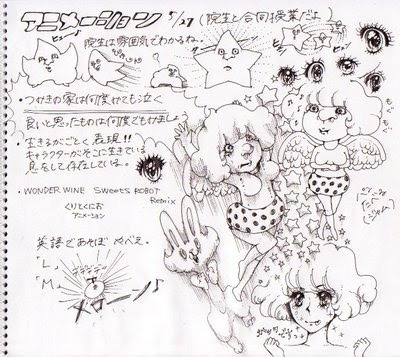 アニメーション 5/27 (院生と合同授業だよ)
院生は雰囲気でわかるね。
・つみきの家は何度みても泣く
良いと思ったものは何度でもみましょ
・生きるがごとく表現!!
キャラクターがそこに生きている
息をして存在している。
・WONDER WINE SWEETS ROBOT
Remix
くりとくにお
アニメーション
英語であそぼ
「L」
「M」
メローン♪
もぐ
もぐ